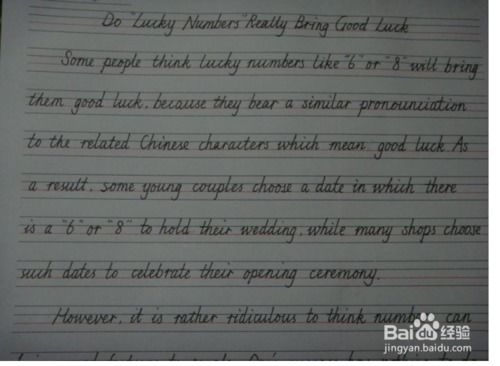 Do "Lucky Numbers" Really Bring Good Luck
Some people think lucky numbers like "6" or "8" will bring
them good luck, because they bear a similar pronounciation
to the related Chinese characters which mean good luck As
a result, some young couples choose a date in which there
is a "6" or "8" to hold their wedding, while many shops choose
such dates to celebrate their opening ceremony.
However, it is rather ridiculous to think numbers can
Baidu 经验
jingyan.baidu.com